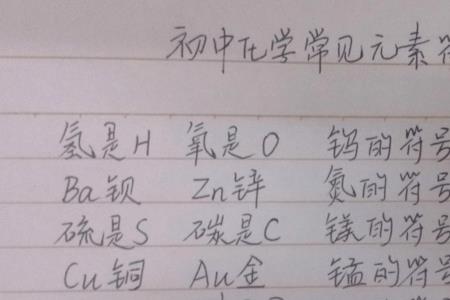 初中化学常见元素符
氢是H 氧是O 钨的符号
Ba钡 Zn锌 氮的符号
硫是S 碳是C 镁的符号
Cu铜 Au金 锰的符号